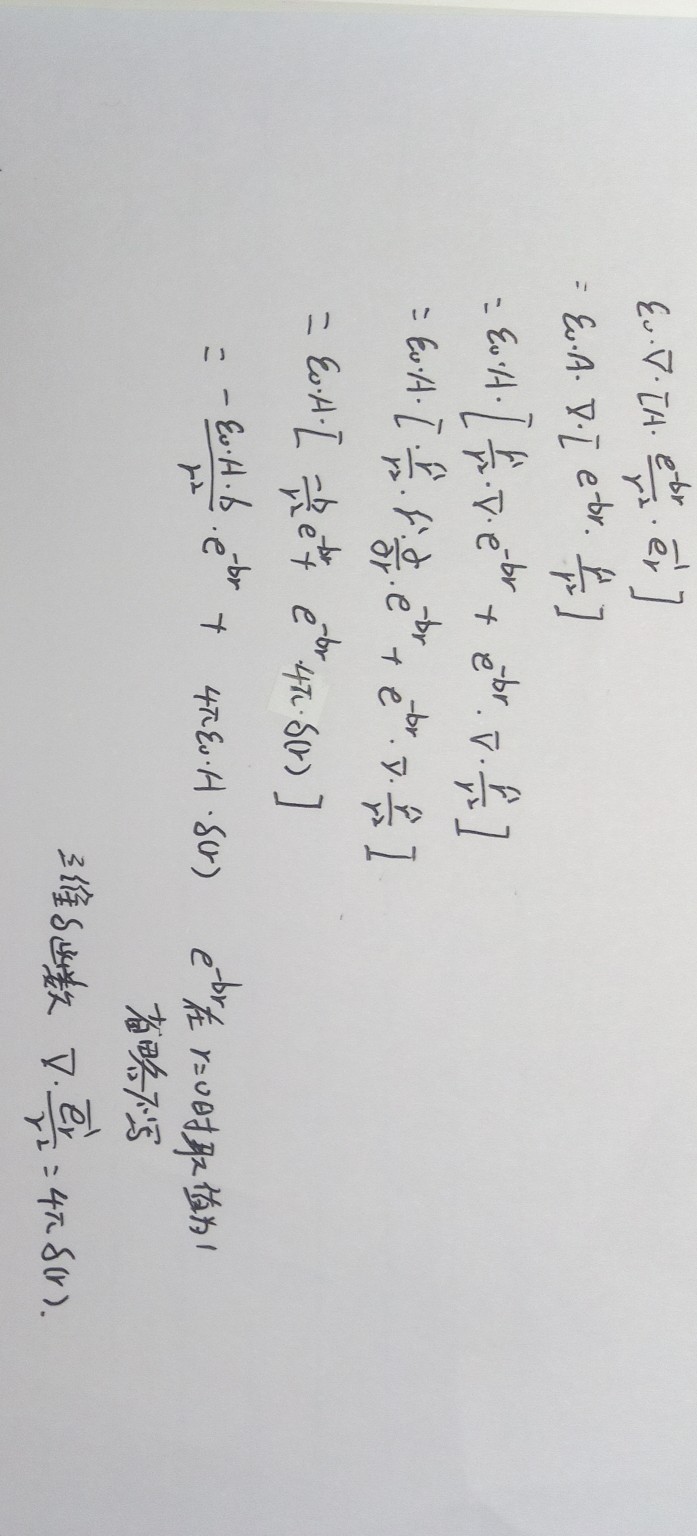 ε₀·∇·[A·\frac{e^{-br}}{r^2}·\vec{e}_r]
= ε₀·A·∇·[e^{-br}·\frac{\hat{r}}{r^2}]
= ε₀·A·[\frac{\hat{r}}{r^2}·∇·e^{-br} + e^{-br}·∇·\frac{\hat{r}}{r^2}]
= ε₀·A·[\frac{\hat{r}}{r^2}·\hat{r}·\frac{∂}{∂r}·e^{-br} + e^{-br}·∇·\frac{\hat{r}}{r^2}]
= ε₀·A·[\frac{-b}{r^2}e^{-br} + e^{-br}·4π·δ(r)]
= -\frac{ε₀·A·b}{r^2}·e^{-br} + 4πε₀·A·δ(r) e^{-br}在r=0时取值为1
省略不写
三维δ函数 ∇·\frac{\vec{e}_r}{r^2}=4πδ(r).